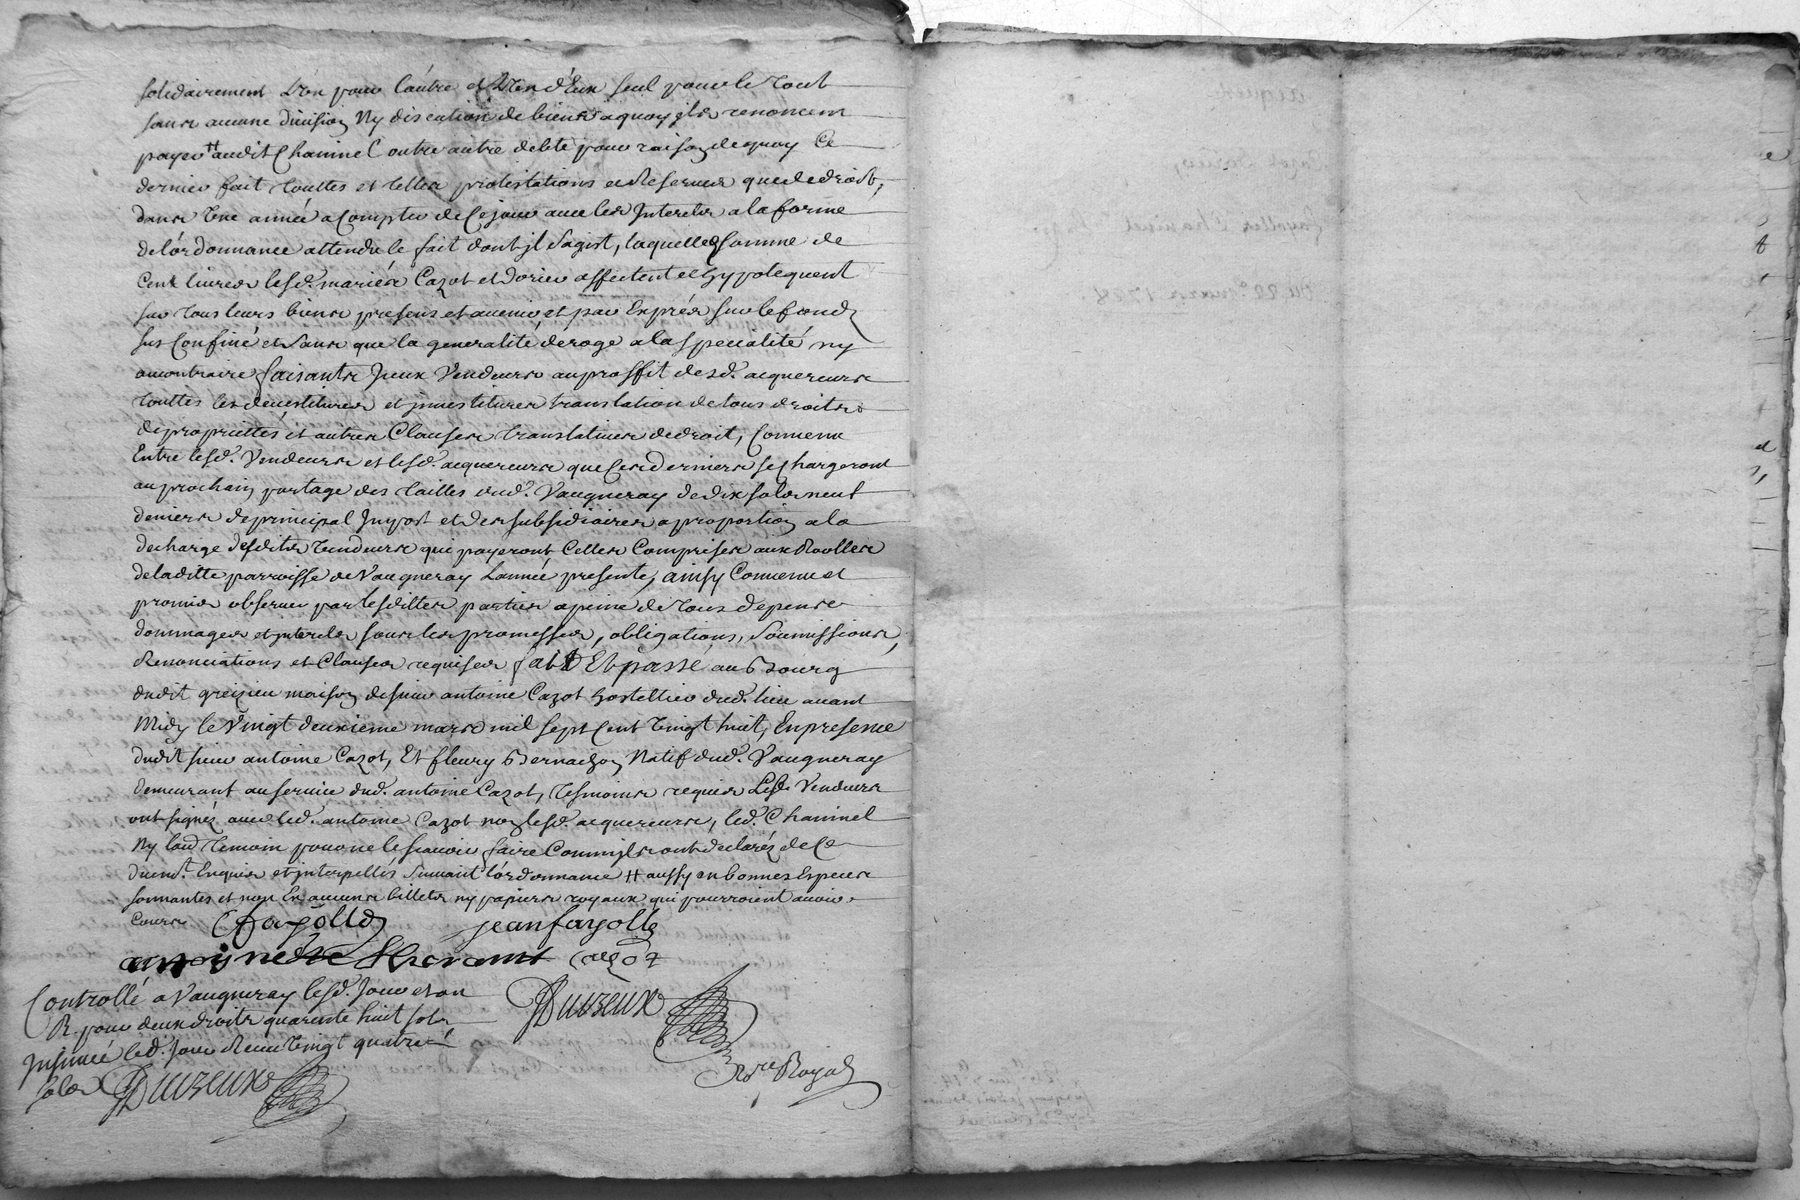 solidairement L'un pour l'autre et l'Un d'Eux seul pour le Tout
sans aucune division Ny discution de biens a quoy jls renoncent
payer # audit Chaninel outre autre debte pour raison de quoy Ce
dernier fait Touttes et telles protestations et Reserves que de droit,
dans Une année a Compter de Ce jour avec les Interets a la forme
de l'ordonnance attendu le fait dont jl s'agist, laquelle somme de
Cent livres lesd. mariés Cazot et Dorier affectent et hypotequent
sur Tous leurs biens presens et avenir et par Exprés sur le fond
sus Confiné et sans que la generalité déroge a la specialité ny
au contraire faisants Jceux Vendeurs au proffit desd. acquereurs
Touttes les devestitures et jnvestitures translation de tous droits
de propriettés et autres Clauses translatives de droit, Convenu
Entre lesd. Vendeurs et lesd. acquereurs que Ces derniers se Chargeront
au prochain partage des Tailles dud. Vaugneray de dix sols neuf
deniers de principal Impost et des subsidiaires a proportion a la
decharge desdits Vendeurs qui payeront Celles Comprises aux Roolles
de laditte parroisse de Vaugneray L'année presente, ainsy Convenu et
promis observer par lesdittes parties a peine de Tous depens
dommages et jnterets sous les promesses, obligations, soumissions,
Renonciations et Clauses requises fait Et passé au Bourg
dudit greizieu maison de sieur antoine Cazot hostellier dud. lieu avant
Midy le Vingt deuxieme mars mil sept Cent Vingt huit, En presence
dudit sieur antoine Cazot, Et fleury Bernachon Natif dud. Vaugneray
demeurant au service dud. antoine Cazot, Tesmoins requis Lesd. Vendeurs
ont signéz avec led. antoine Cazot non lesd. acquereurs, led. Chaninel
Ny l'aud Temoin pour ne le scavoir faire Comm jls ont declaréz de Ce
duem.t Enquis et jnterpellés suivant l'ordonnance # aussy en bonnes Especes
sonnantes et non En aucuns billets ny papiers royaux qui pourroient avoir
Cours
Fayolle
jean fayolle
Cazot
Controllé a Vaugneray lesd. Jour et an
R. pour deux droits quarente huit sols
Insinué led. Jour Receu Vingt quatre
sols
Duvzeux
Duvzeux
N.re Royal